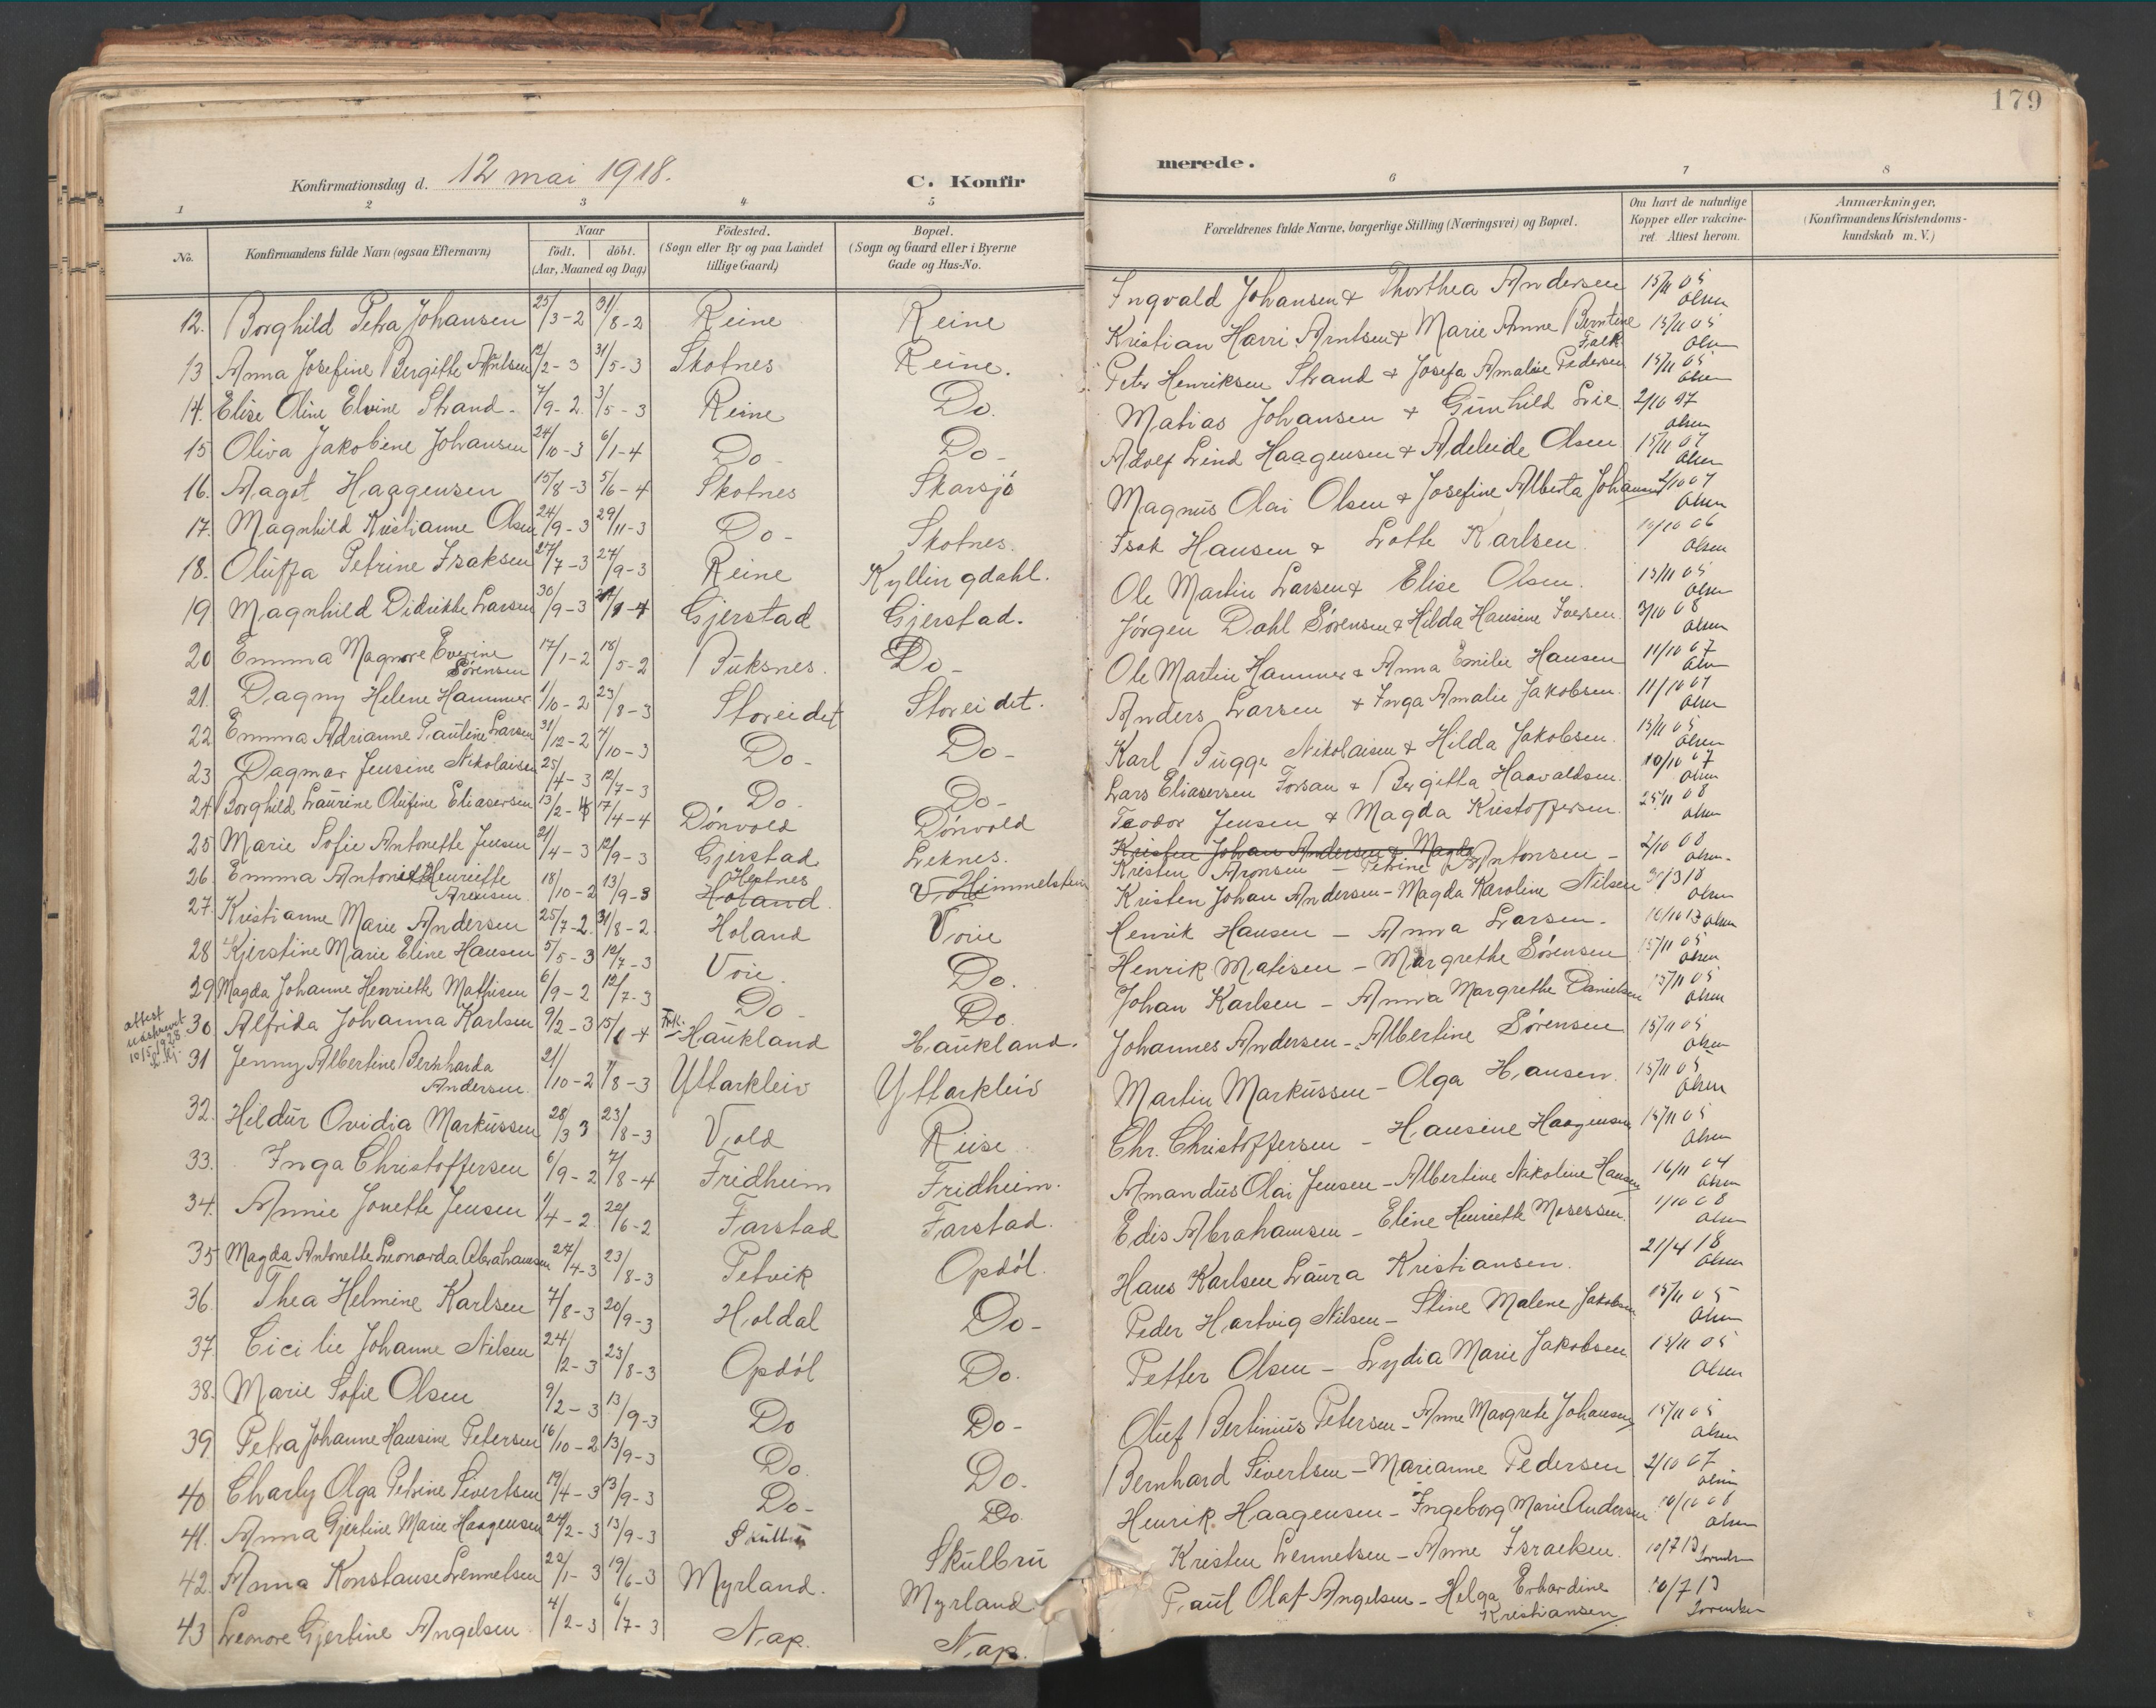 179
Konfirmationsdag d. 12 mai 1918.
C. Konfirmerede.
1 2 3 4 5 6 7 8
No.
Konfirmandens fulde Navn (ogsaa Efternavn)
Naar
födt. döbt.
(Aar, Maaned og Dag)
Födested.
(Sogn eller By og paa Landet
tillige Gaard)
Bopæl.
(Sogn og Gaard eller i Byerne
Gade og Hus-No.
Forældrenes fulde Navne, borgerlige Stilling (Næringsvei) og Bopæl.
Om havt de naturlige
Kopper eller vakcine-
ret. Attest herom.
Anmærkninger,
(Konfirmandens Kristendoms-
kundskab m. V.)
12. Borghild Petra Johansen 25/3-2 31/8-2 Reine Reine Ingvald Johansen & Thorthea Andersen 15/11 05 Olsen
13 Anna Josefine Bergitte Arntsen 12/2-3 31/5-3 Skotnes Reine. Kristian Harri Arntsen & Marie Anne Berntine Falk 15/11 05 Olsen
14. Elise Oline Elvine Strand 7/9-2 3/5-3 Reine Do. Peter Henriksen Strand & Josefa Amalie Pedersen 15/11 05 Olsen
15 Oliva Jakobine Johansen 24/10-3 6/1-4 Do- Do- Matias Johansen & Gunhild Lie 2/10 07 Olsen
16. Aagot Haagensen 15/8-3 5/6-4 Skotnes Skarsjö Adolf Lind Haagensen & Adeleide Olsen 15/11 07 Olsen
17. Magnhild Kristianne Olsen 24/9-3 29/11-3 Do- Skotnes. Magnus Olai Olsen & Josefine Alberta Johansen 2/10 07 Olsen
18. Oluffa Petrine Isaksen 27/7-3 27/9-3 Reine Kyllingdahl. Isak Hansen & Lotte Karlsen 10/10 06 Olsen
19 Magnhild Didrikke Larsen 30/9-3 Gjerstad Gjerstad. Ole Martin Larsen & Elise Olsen. 15/11 05 Olsen
20 Emma Magnore Everine Sörensen 17/1-2 18/5-2 Buksnes. Do- Jörgen Dahl Sörensen & Hilda Hansine Iversen 3/10 08 Olsen
21. Dagny Helene Hammer 1/10-2 23/8-3 Storeidet Storeidet. Ole Martin Hammer & Anna Emilie Hansen 11/10 07 Olsen
22 Emma Adrianne Pauline Larsen 31/12-2 4/10-3 Do- Do- Anders Larsen & Inga Amalie Jakobsen. 11/10 07 Olsen
23 Dagmar Jensine Nikolaisen 25/4-3 12/7-3 Do- Do- Karl Bugge Nikolaisen & Hilda Jakobsen. 15/11 05 Olsen
24 Borghild Laurine Olufine Eliasersen 13/2-4 17/4-4 Dönvold Dönvold Lars Eliasersen Forsan & Bergitta Haavaldsen. 10/10 07 Olsen
25 Marie Sofie Antonette Jensen 21/4-3 12/9-3 Gjerstad Leknes. Teodor Jensen & Magda Kristoffersen 25/11 08 Olsen
Kristen Johan Andersen & Magda
26. Emma Antonette Henriette Aronsen 18/10-2 13/9-3 Hestnes Holand Voie Himmelstein Kristen Aronsen - Petrine Antonsen - 2/10 08 Olsen-
27. Kristianne Marie Andersen 25/7-2 31/8-2 Holand Voie Kristen Johan Andersen - Magda Karoline Nilsen 30/3 18 Olsen
28 Kjerstine Marie Eline Hansen 5/5-3 12/7-3 Voie Do. Henrik Hansen - Anna Larsen- 10/10 13 Olsen
29 Magda Johanne Henriette Mathisen 6/9-2 12/7-3 Do- Do. Henrik Matisen - Margrethe Sörensen 15/11 05 Olsen
attest utskrevet 10/5 1928
30 Alfrida Johanna Karlsen 9/2-3 Haukland Haukland. Johan Karlsen - Anna Margrethe Danielsen 15/11 05 Olsen
31 Jenny Albertine Bernharda Andersen 21/10-2 7/8-3 Yttarkleiv Yttarkleiv Johannes Andersen - Albertine Sörensen 15/11 05 Olsen
32. Hildur Ovidia Markussen 28/3 3 23/8-3 Vold Reise Martin Markussen - Olga Hansen. 15/11 05 Olsen
33. Inga Christoffersen 6/9-2 7/8-4 Fridheim Fridheim. Chr. Christoffersen - Hansine Haagensen 15/11 05 Olsen
34. Annie Jonette Jensen 1/4-2 22/6-2 Farstad Farstad. Amandus Olai Jensen - Albertine Nikoline Hansen 16/11 04 Olsen
35 Magda Antonette Leonarda Abrahamsen 27/4-3 23/8-3 Petvik Opdöl. Edis Abrahamsen - Eline Henriette Mosessen. 1/10 08 Olsen
36. Thea Helmine Karlsen 7/8-3 20/9-3 Holdal Do- Hans Karlsen Laura Kristiansen. 21/4 18 Olsen
37. Cicilie Johanne Nilsen 24/2-3 23/8-3 Opdöl Do. Peder Hartvig Nilsen - Stine Malene Jakobsen 15/11 05 Olsen
38. Marie Sofie Olsen 9/2-3 13/9-3 Do Do- Petter Olsen - Lydia Marie Jakobsen 15/11 05 Olsen
39. Petra Johanne Hansine Petersen 16/10-2 13/9-3 Do. Do. Oluf Bertinius Petersen - Anne Margrete Johansen 15/11 05 Olsen
40 Charly Olga Petrine Sivertsen 19/4-3 13/9-3 Do- Do Bernhard Sivertsen - Marianne Pedersen 2/10 07 Olsen
41. Anna Gjertine Marie Haagensen 24/2-3 13/9-3 Skulbru Henrik Haagensen - Ingeborg Marie Andersen 10/10 06 Olsen
42. Anna Konstanse Lennetsen 22/1-3 19/6-3 Myrland. Myrland Kristen Lennetsen - Anne Israelsen. 10/7 13
43 Leonore Gjertine Angelsen 4/2-3 6/7-3 Nap. Nap. Paul Olaf Angelsen - Helga Erhardine Kristiansen 10/7 13